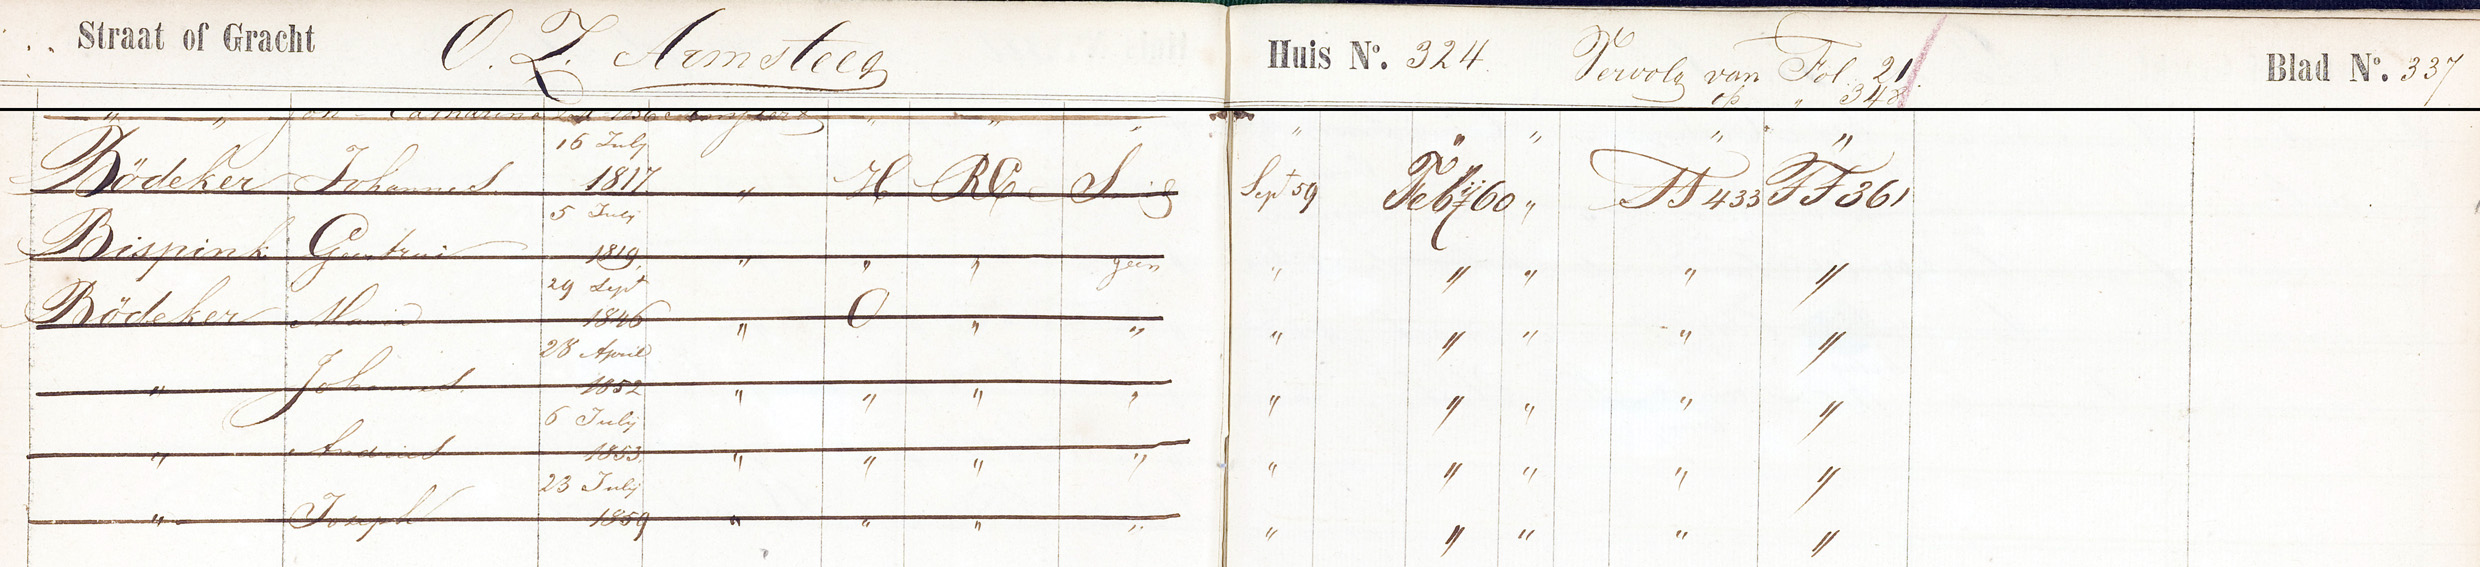 Straat of Gracht O. Z. Armsteeg Huis No. 324 Vervolg van Fol. 21 Blad No. 337
op " 348
" " Joh Catharine " " "
16 July " " " " "
Bödeker Johannes 1817 " H RC S Sept 59 Feb 60 " TT 433 FF 361
5 July
Bispink Geertrui 1819 " " " geen " " " " "
29 Sept
Bödeker Maria 1846 " O " " " " " " "
28 April
" Johannes 1852 " " " " " " " " "
6 July
" Andries 1853 " " " " " " " " "
23 July
" Joseph 1859 " " " " " " " " "